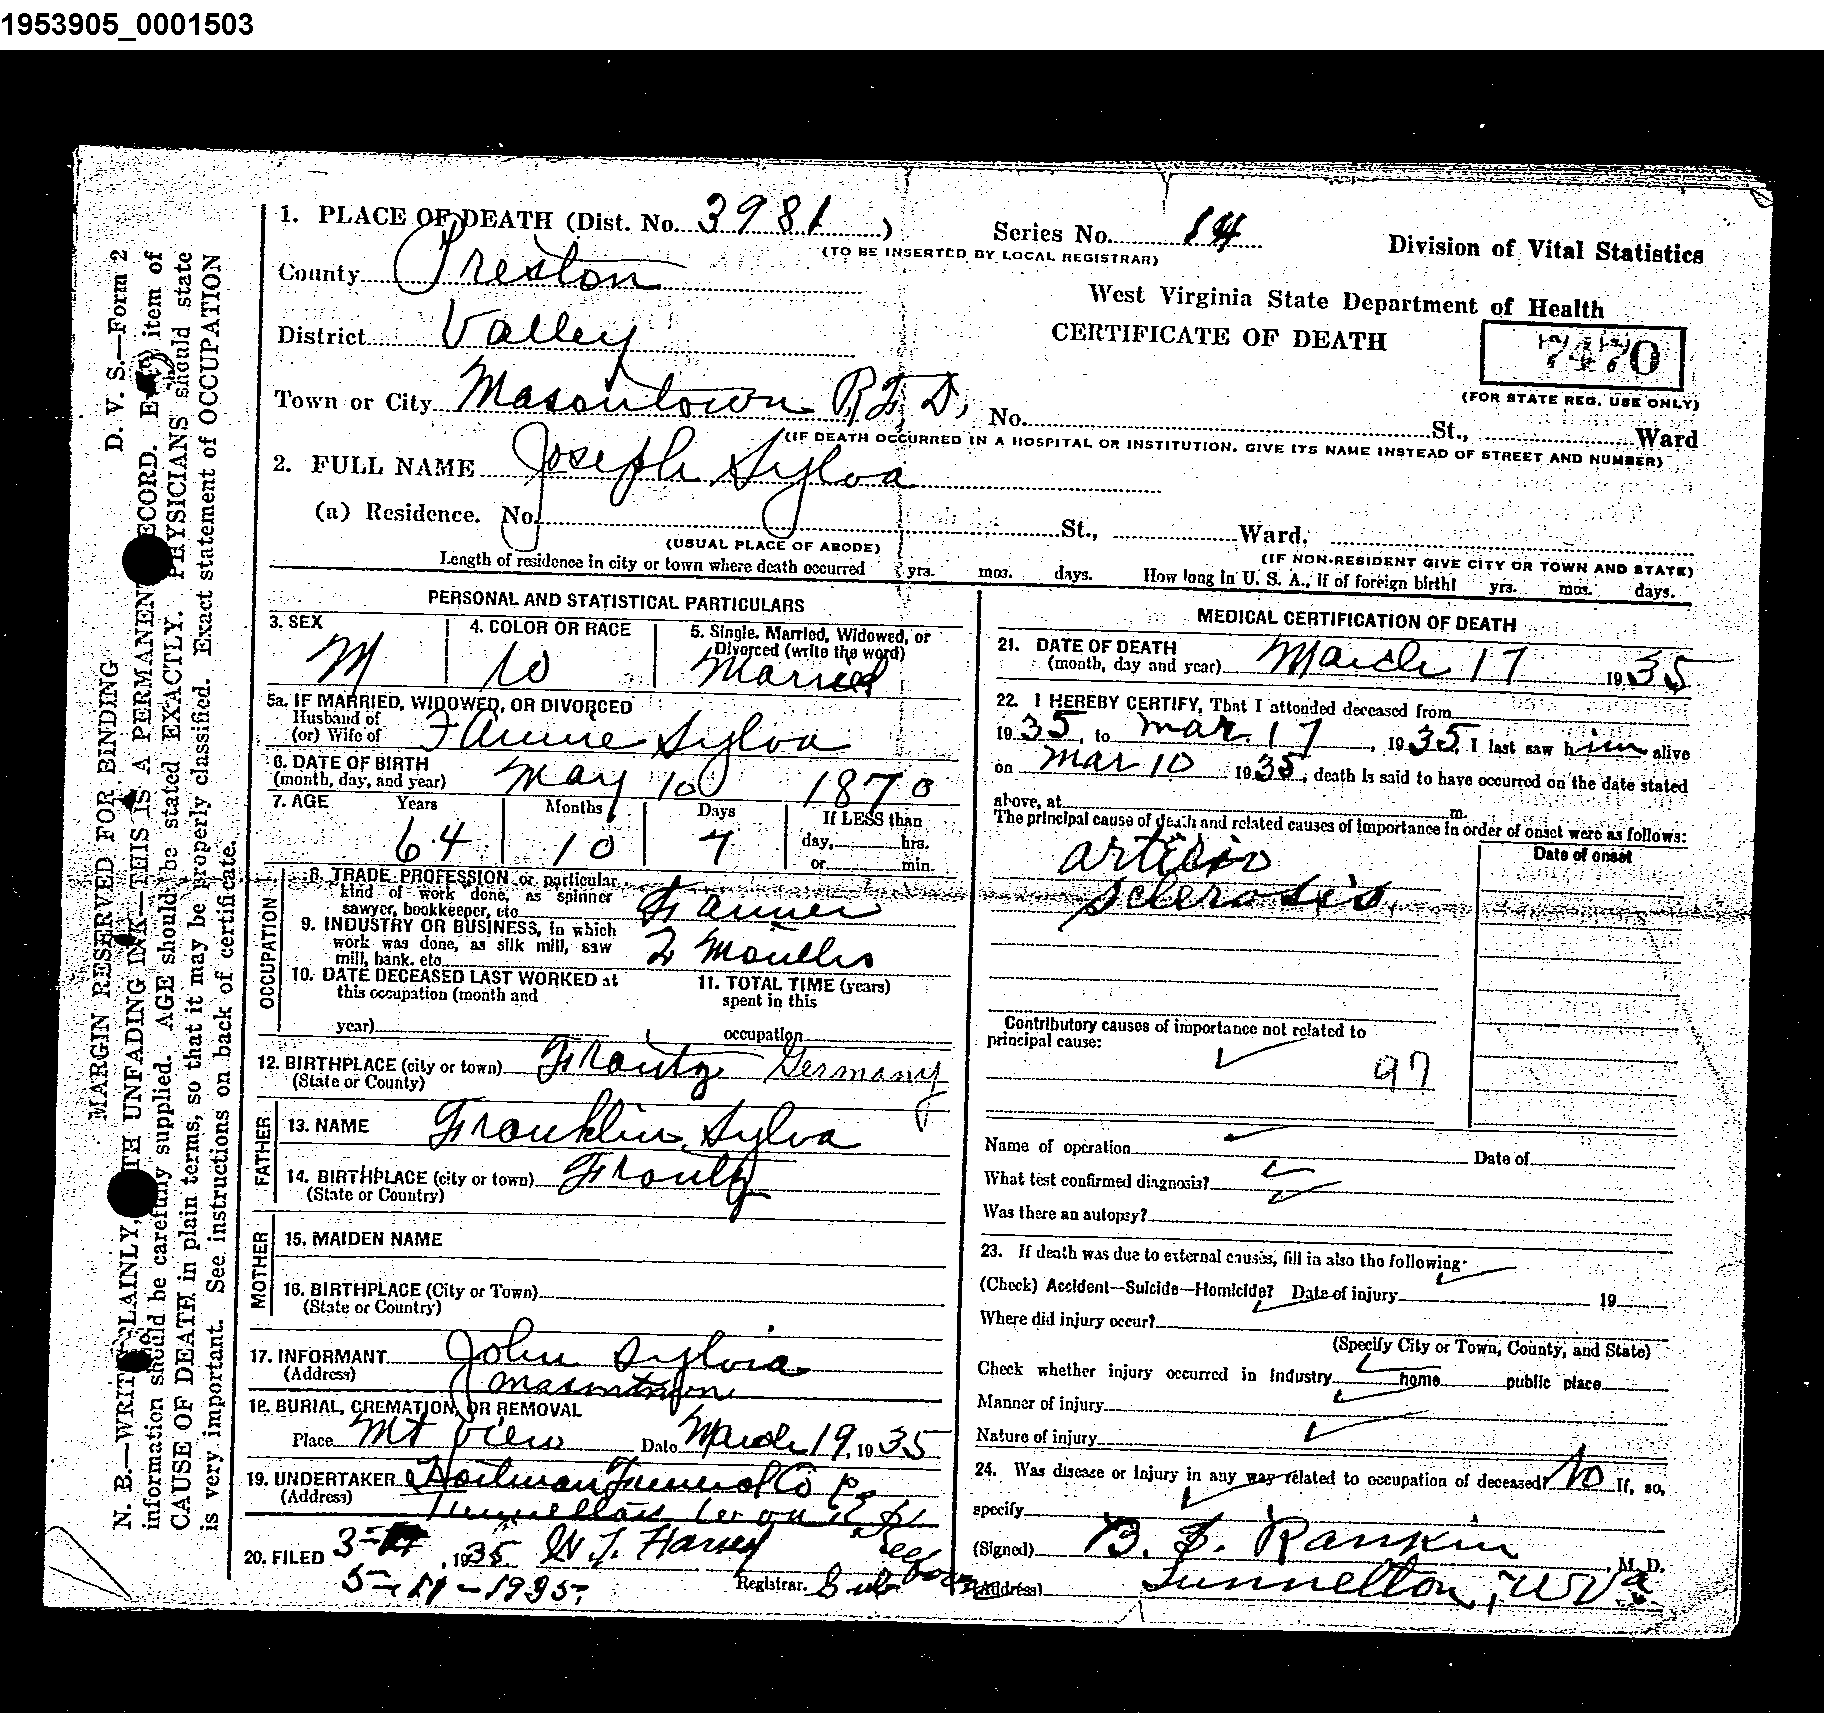 1953905_0001503
1. PLACE OF DEATH (Dist. No. 3981 )
Series No. 14
(TO BE INSERTED BY LOCAL REGISTRAR)
Division of Vital Statistics
County Preston
West Virginia State Department of Health
District Valley
CERTIFICATE OF DEATH
7470
(FOR STATE REG. USE ONLY)
Town or City Masontown R.F.D, No. St., Ward
(IF DEATH OCCURRED IN A HOSPITAL OR INSTITUTION, GIVE ITS NAME INSTEAD OF STREET AND NUMBER)
2. FULL NAME Joseph Sylva
(a) Residence. No. St., Ward,
(USUAL PLACE OF ABODE)
(IF NON-RESIDENT GIVE CITY OR TOWN AND STATE)
Length of residence in city or town where death occurred yrs. mos. days. How long in U. S. A., if of foreign birth! yrs. mos. days.
PERSONAL AND STATISTICAL PARTICULARS
3. SEX
M
4. COLOR OR RACE
W
5. Single, Married, Widowed, or
Divorced (write the word)
Married
5a. IF MARRIED, WIDOWED, OR DIVORCED
Husband of
(or) Wife of Fannie Sylva
6. DATE OF BIRTH
(month, day, and year) May 10 1870
7. AGE Years Months Days If LESS than
64 10 7 day, hrs.
or min.
OCCUPATION
8. TRADE PROFESSION or particular
kind of work done, as spinner
sawyer, bookkeeper, etc Farmer
9. INDUSTRY OR BUSINESS, in which
work was done, as silk mill, saw
mill, bank, etc 2 Months
10. DATE DECEASED LAST WORKED at
this occupation (month and
year)
11. TOTAL TIME (years)
spent in this
occupation
12. BIRTHPLACE (city or town) Frantz Germany
(State or County)
FATHER
13. NAME Franklin Sylva
14. BIRTHPLACE (city or town) Frantz
(State or Country)
MOTHER
15. MAIDEN NAME
16. BIRTHPLACE (City or Town)
(State or Country)
17. INFORMANT John Sylvia
(Address) Masontown
18. BURIAL, CREMATION, OR REMOVAL
Place Mt View Date March 19, 1935
19. UNDERTAKER Funeral Co
(Address)
20. FILED 3- , 1935 W J. Harvey
Registrar. Sub
5-11-1935.
MEDICAL CERTIFICATION OF DEATH
21. DATE OF DEATH
(month, day and year) March 17 1935
22. I HEREBY CERTIFY, That I attended deceased from
1935, to Mar. 17, 1935, I last saw him alive
on Mar 10 1935, death is said to have occurred on the date stated
above, at m.
The principal cause of death and related causes of importance in order of onset were as follows:
Date of onset
arterio
sclerosis.
Contributory causes of importance not related to
principal cause:
97
Name of operation Date of
What test confirmed diagnosis?
Was there an autopsy?
23. If death was due to external causes, fill in also the following:
(Check) Accident—Suicide—Homicide? Date of injury 19
Where did injury occur?
(Specify City or Town, County, and State)
Check whether injury occurred in industry home public place
Manner of injury
Nature of injury
24. Was disease or injury in any way related to occupation of deceased? No If, so,
specify
(Signed) B. F. Rankin M. D.
(Address) Tunnelton, W Va.
D. V. S.—Form 2
MARGIN RESERVED FOR BINDING
N. B.—WRITE PLAINLY, WITH UNFADING INK—THIS IS A PERMANENT RECORD. Every item of
information should be carefully supplied. AGE should be stated EXACTLY. PHYSICIANS should state
CAUSE OF DEATH in plain terms, so that it may be properly classified. Exact statement of OCCUPATION
is very important. See instructions on back of certificate.